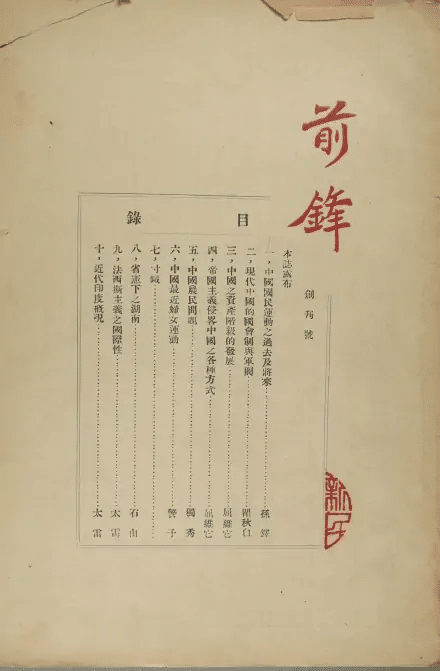 前鋒
創刊號
目錄
本誌露布
一，中國國民運動之過去及將來……孫鐸
二，現代中國的國會制與軍閥……瞿秋白
三，中國之資產階級的發展……屈維它
四，帝國主義侵畧中國之各種方式……屈維它
五，中國農民問題……獨秀
六，中國最近婦女運動……警予
七，寸鐵……
八，省憲下之湖南……石山
九，法西斯主義之國際性……太雷
十，近代印度概況……太雷
新民